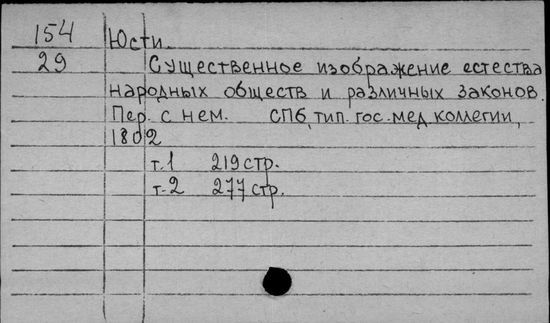 154 Юсти.
29 Существенное изображение естества
народных обществ и различных законов.
Пер. с нем. СПб, тип. гос. мед. коллегии,
1802
т.1 219 стр.
т.2 277 стр.